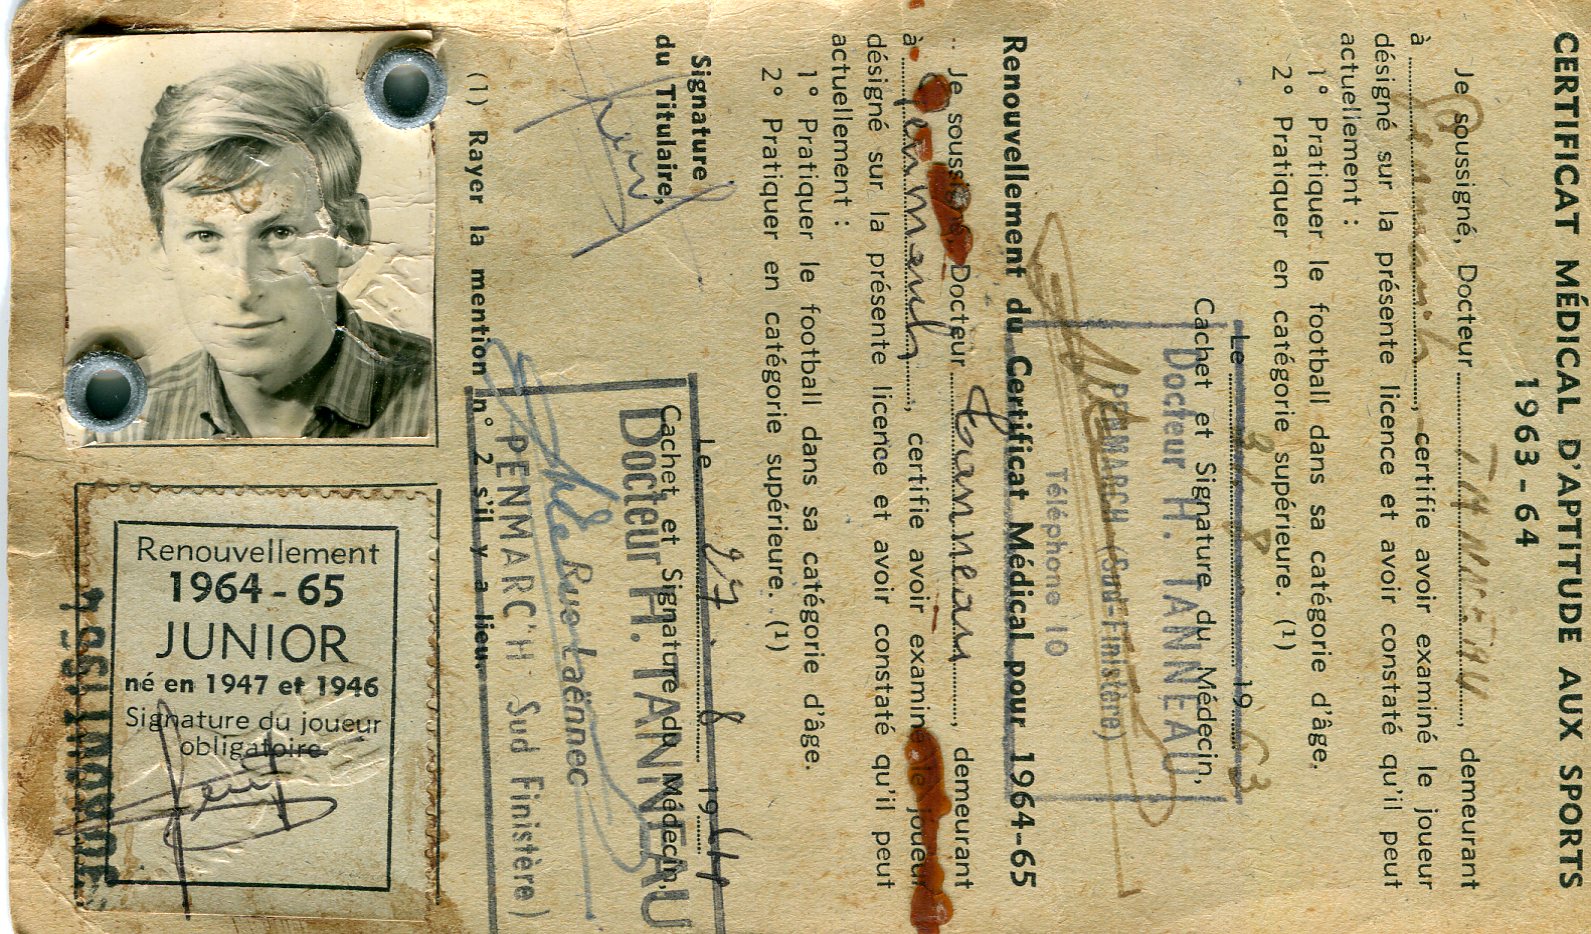 CERTIFICAT MÉDICAL D'APTITUDE AUX SPORTS
1963-64
Je soussigné, Docteur TANNEAU, demeurant
à Penmarch, certifie avoir examiné le joueur
désigné sur la présente licence et avoir constaté qu'il peut
actuellement :
1° Pratiquer le football dans sa catégorie d'âge.
2° Pratiquer en catégorie supérieure. (1)
Le 31 8 19 63
Cachet et Signature du Médecin,
Docteur H. TANNEAU
PENMARCH (Sud-Finistère)
Téléphone 10
Renouvellement du Certificat Médical pour 1964-65
Je soussigné, Docteur Tanneau, demeurant
à Penmarch, certifie avoir examiné le joueur
désigné sur la présente licence et avoir constaté qu'il peut
actuellement :
1° Pratiquer le football dans sa catégorie d'âge.
2° Pratiquer en catégorie supérieure. (1)
Le 27. 8 1964
Signature
du Titulaire,
Cachet et Signature du Médecin,
Docteur H. TANNEAU
Rue Laënnec
PENMARC'H Sud Finistère)
(1) Rayer la mention n° 2 s'il y a lieu.
Renouvellement
1964-65
JUNIOR
né en 1947 et 1946
Signature du joueur
obligatoire